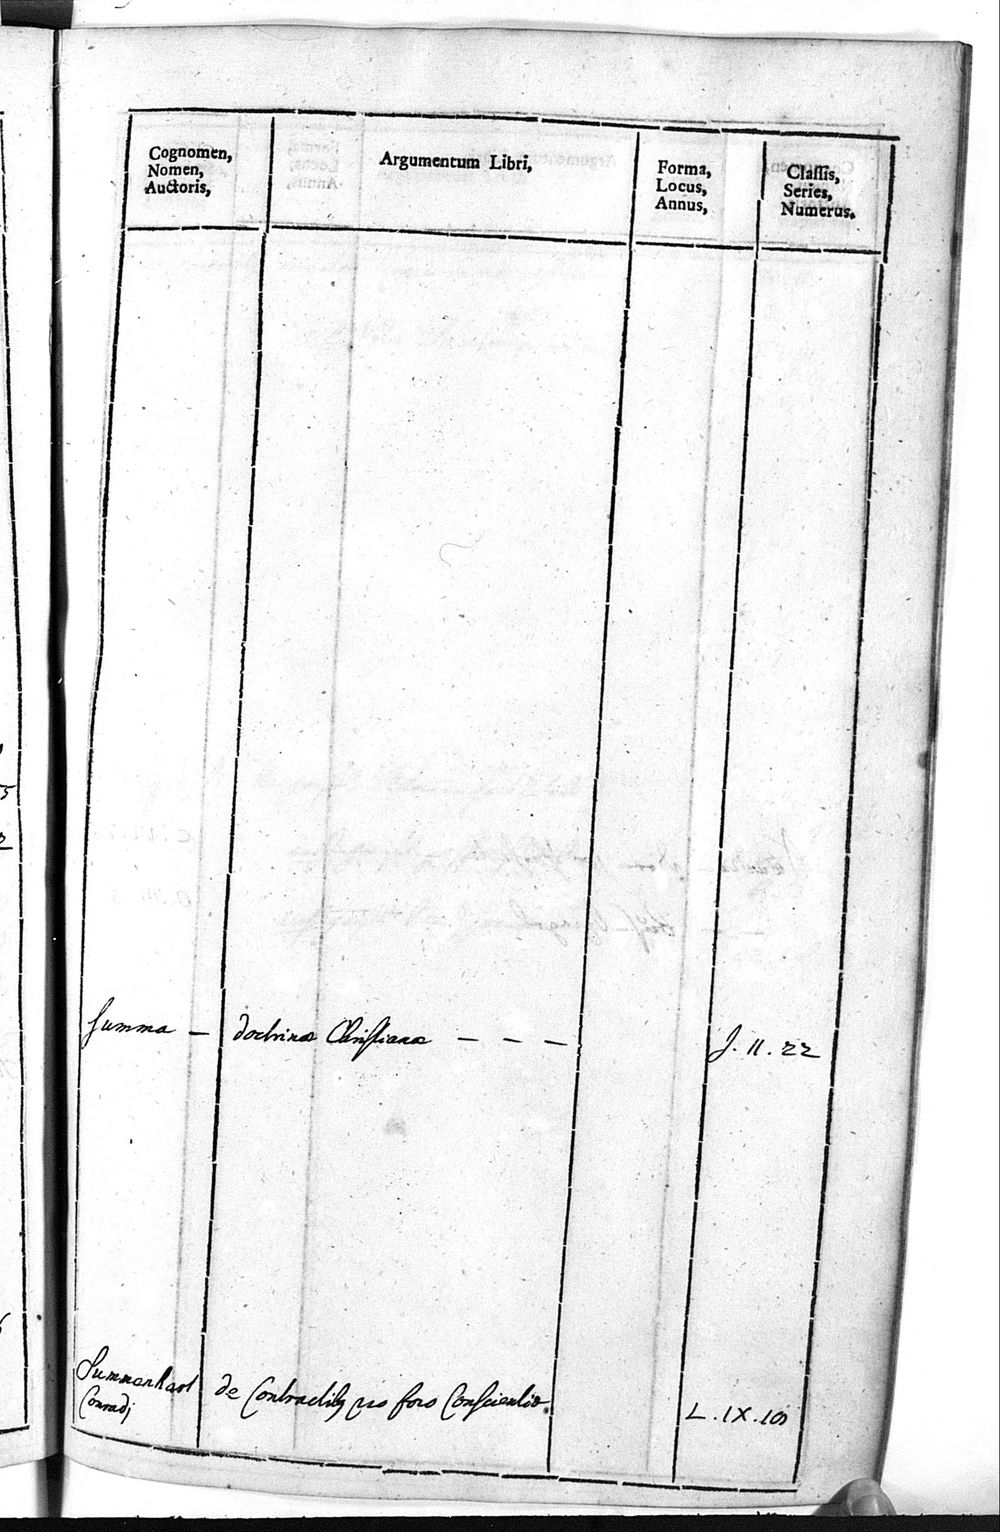 Cognomen,
Nomen,
Auctoris,
Argumentum Libri,
Forma,
Locus,
Annus,
Classis,
Series,
Numerus.
Summa — doctrinæ Christianæ — — — J. II. 22
Summenhart de Contractibq pro foro Conscientiæ. L. IX.
Conradj